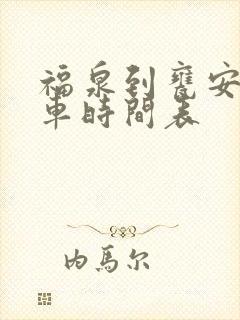 福泉到瓮安
車時間表
内馬尔